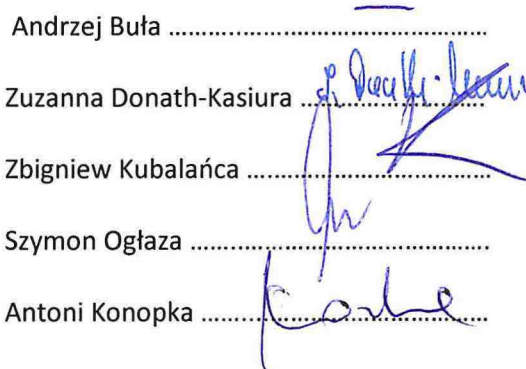 Andrzej Buła ................................................
Zuzanna Donath-Kasiura ............................
Zbigniew Kubalańca ....................................
Szymon Ogłaza .............................................
Antoni Konopka ...........................................